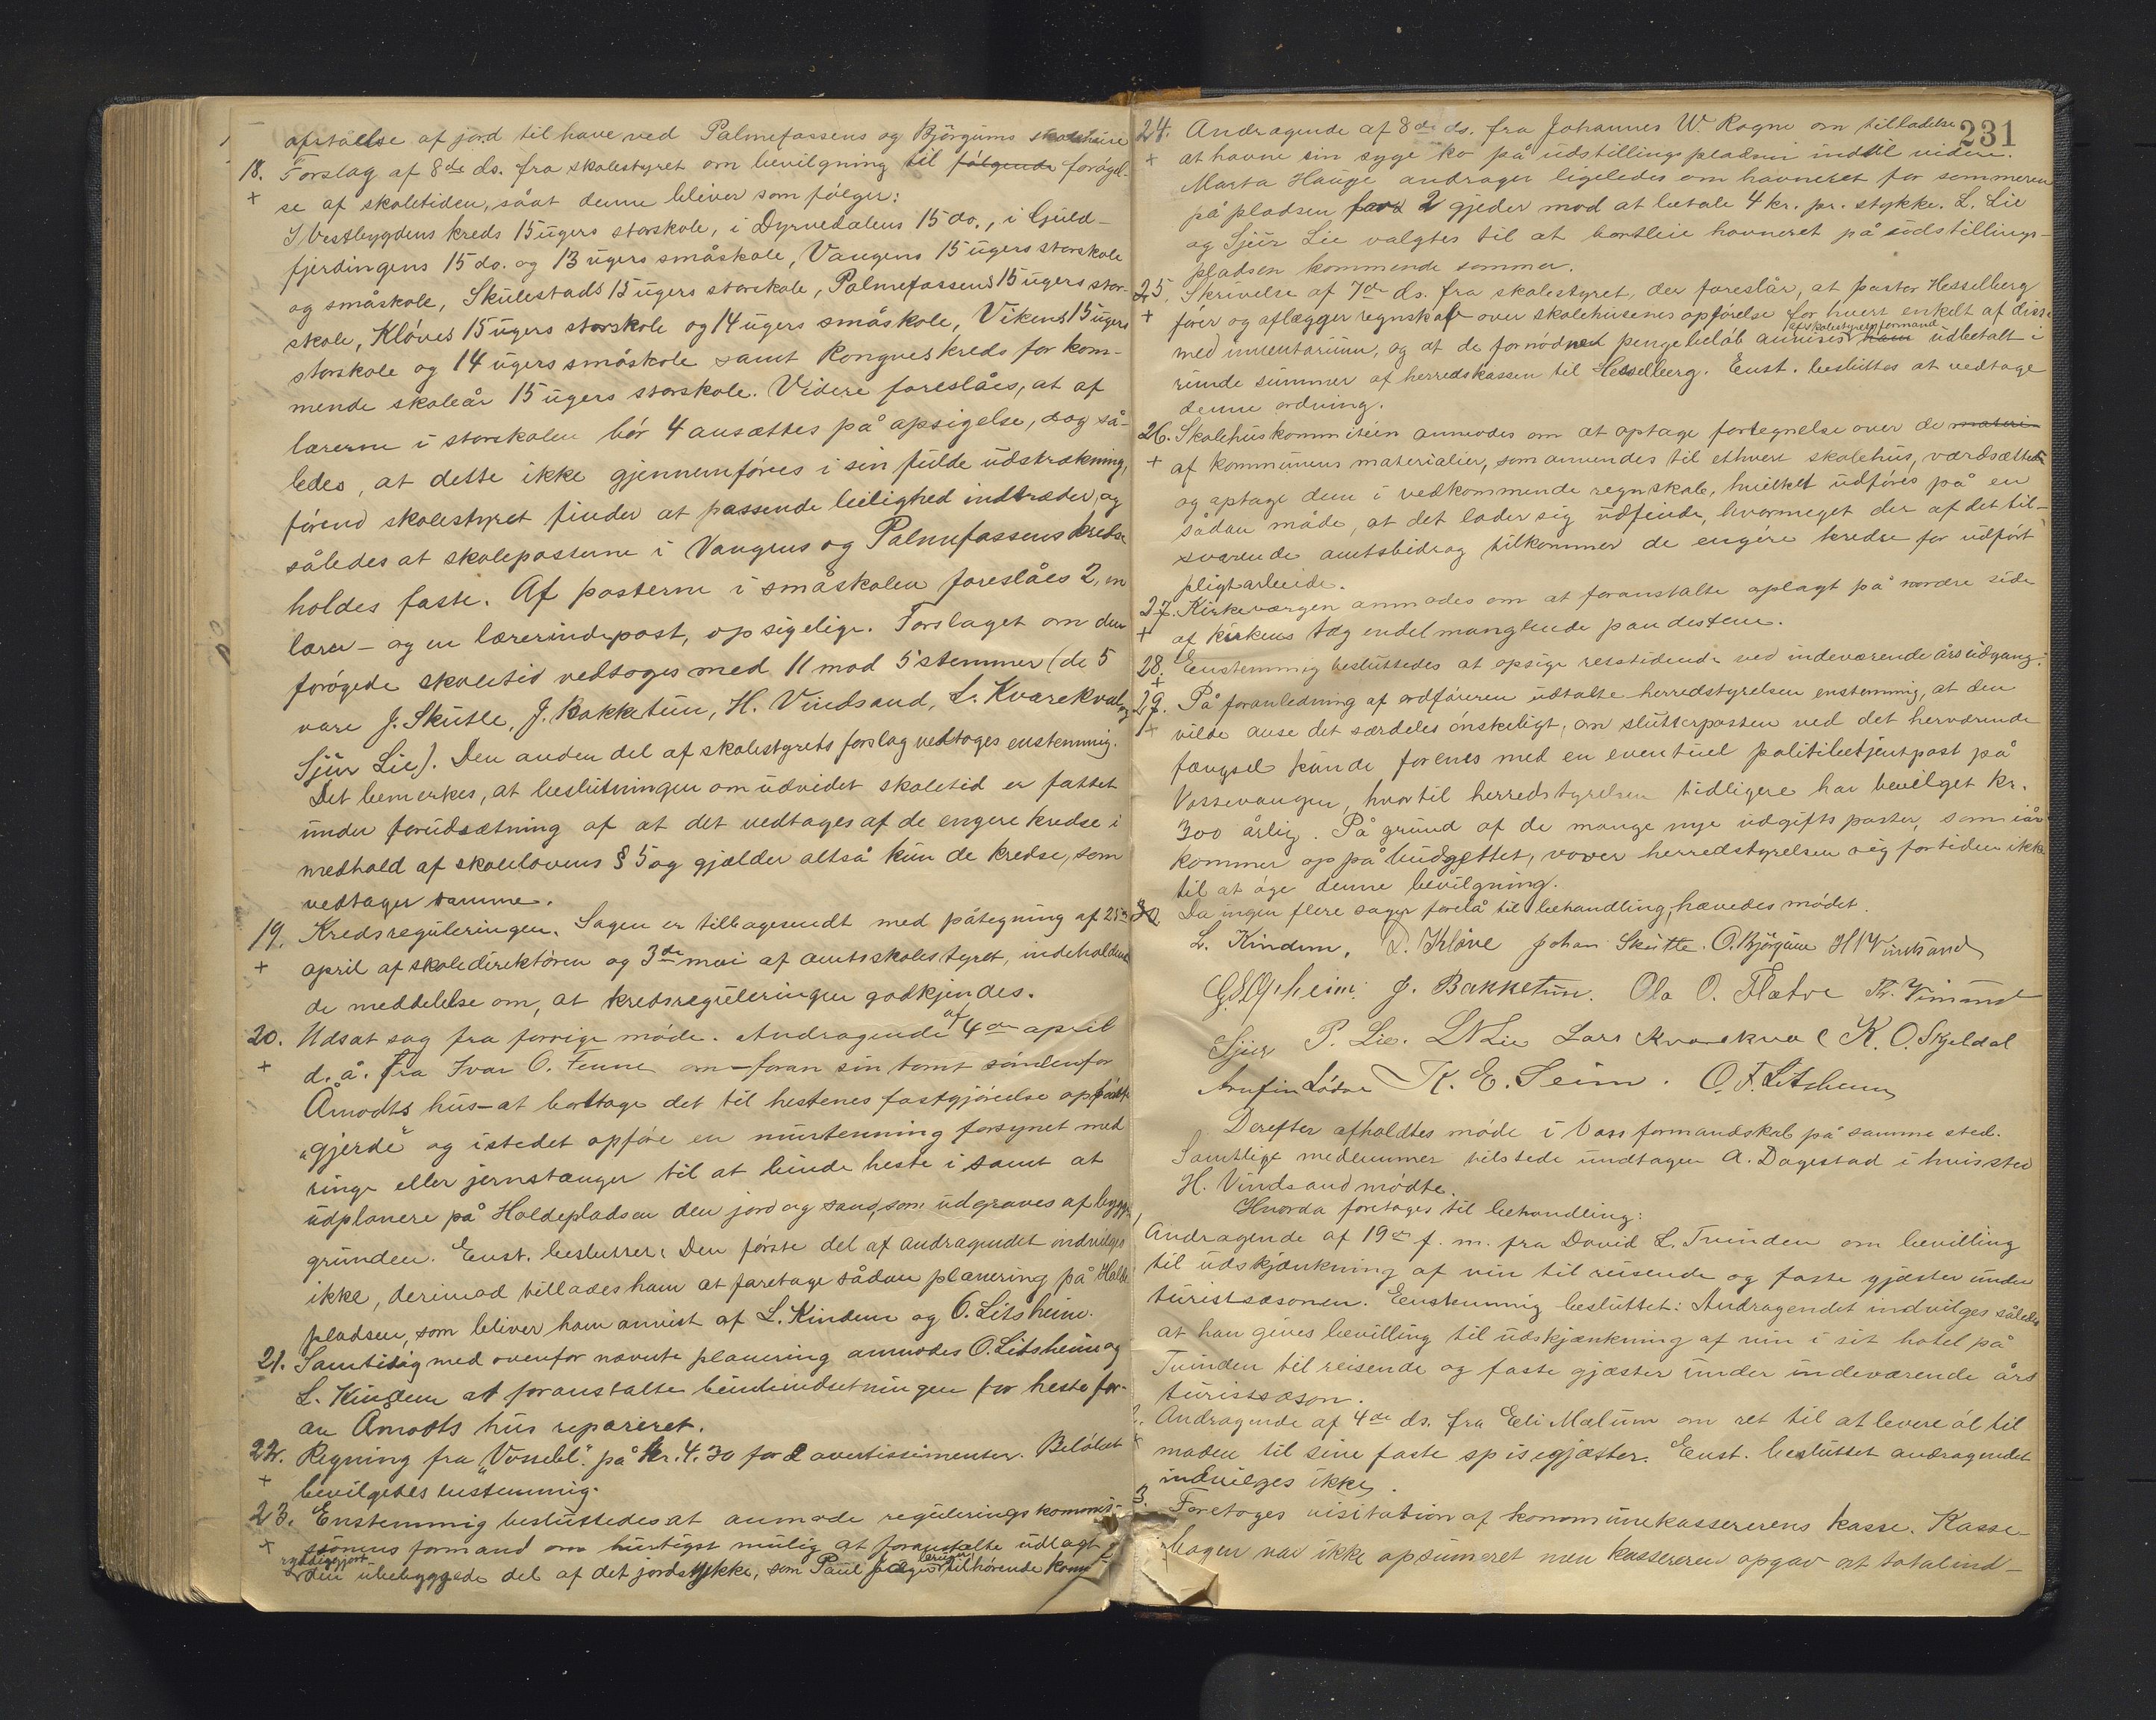 afståelse af jord til have ved Palmefossens og Bjørgums skolehuse
18. Forslag af 8de ds. fra skolestyret om bevilgning til følgende forøgel-
+ se af skoletiden, såat denne bliver som følger:
I Vestbygdens kreds 15 ugers storskole, i Dyrvedalens 15 do., i Guld-
fjerdingens 15 do. og 13 ugers småskole, Vangens 15 ugers storskole
og småskole, Skulestads 15 ugers storskole, Palmefossens 15 ugers stor-
skole, Kløves 15 ugers storskole og 14 ugers småskole, Vikens 15 ugers
storskole og 14 ugers småskole samt Rongves kreds for kom-
mende skoleår 15 ugers storskole. Videre foreslåes, at af
lærerne i storskolen bør 4 ansættes på opsigelse, dog så-
ledes, at dette ikke gjennemføres i sin fulde udstrækning,
førend skolestyret finder at passende leilighed indtræder, og
således at skoleposterne i Vangens og Palmefossens kredse
holdes faste. Af posterne i småskolen foreslåes 2, en
lærer- og en lærerindepost, opsigelige. Forslaget om den
forøgede skoletid vedtoges med 11 mod 5 stemmer (de 5
vare J. Skutle, J. Bakketun, H. Vindsand, L. Kvarekval og
Sjur Lie). Den anden del af skolestyrets forslag vedtoges enstemmig.
Det bemerkes, at beslutningen om udvidet skoletid er fattet
under forudsætning af at det vedtages af de engere kredse i
medhold af skolelovens § 5 og gjælder altså kun de kredse, som
vedtager samme.
19. Kredsreguleringen. Sagen er tilbagesendt med påtegning af 25de
+ april af skoledirektøren og 3die mai af amtsskolestyret, indeholden-
de meddelelse om, at kredsreguleringen godkjendes.
20. Udsat sag fra forrige møde. Andragende af 4de april
+ d. å. fra Ivar O. Fenne om - foran sin tomt søndenfor
Åmodts hus - at borttage det til hestenes fastgjørelse opførte
"gjerde" og istedet opføre en murstenning forsynet med
ringe eller jernstænger til at binde heste i samt at
udplanere på Holdepladsen den jord og sand, som udgraves af bygge-
grunden. Enst. besluttet: Den første del af andragendet indvilges
ikke, derimod tillades ham at foretage sådan planering på Holde-
pladsen, som bliver ham anvist af L. Kindem og O. Litsheim.
21. Samtidig med ovenfor nævnte planering anmodes O. Litsheim og
L. Kindem at foranstalte bindeindsetningen for heste for-
an Åmodts hus repareret.
22. Regning fra "Vossebl." på kr. 4.30 for 2 avertissimenter. Beløbet
+ bevilgedes enstemmig.
23. Enstemmig besluttedes at anmode reguleringskommis-
+ sionens formand om hurtigst mulig at foranstalte udlagt
ryddiggjort bruger
den ubebyggede del af det jordstykke, som Paul Jæger tilhørende kom-
231
24. Andragende af 8de ds. fra Johannes W. Rogne om tilladelse
+ at havne sin syge ko på udstillingspladsen indtil videre.
Marta Hauge andrager ligeledes om havneret for sommeren
på pladsen for 2 gjeder mod at betale 4 kr. pr. stykke. L. Lie
og Sjur Lie valgtes til at bortleie havneret på udstillings-
pladsen kommende sommer.
25. Skrivelse af 7de ds. fra skolestyret, der foreslår, at pastor Hesselberg
+ fører og aflægger regnskab over skolehusenes opførelse for hvert enkelt af disse
af skolestyrets formand
med inventarium, og at de fornødne pengebeløb anvises ham udbetalt i
runde summer af herredskassen til Hesselberg. Enst. besluttes at vedtage
denne ordning.
26. Skolehuskommiteen anmodes om at optage fortegnelse over de materi
+ af kommunens materialier, som anvendes til ethvert skolehus, værdsætte
og optage dem i vedkommende regnskab, hvilket udføres på en
sådan måde, at det lader sig udfinde, hvormeget der af det til-
svarende amtsbidrag tilkommer de engere kredse for udført
pligtarbeide.
27. Kirkeværgen anmodes om at foranstalte oplagt på nordre side
+ af kirkens tag endel manglende pandestene.
28. Enstemmig besluttedes at opsige retstidende ved indeværende års udgang.
+
29. På foranledning af ordføreren udtalte herredstyrelsen enstemmig, at den
+ vilde anse det særdeles ønskeligt, om slutterposten ved det herværende
fængsel kunde forenes med en eventuel politibetjentpost på
Vossevangen, hvortil herredstyrelsen tidligere har bevilget kr.
300 årlig. På grund af de mange nye udgiftsposter, som iår
kommer op på budgettet, vover herredstyrelsen sig fortiden ikke
til at øge denne bevilgning.
30. Da ingen flere sager forelå til behandling, hævedes mødet.
L. Kindem, D. Kløve Johan Skutle. O. Bjørgum H Vindsand
J. Bakketun. Ola O. Flatre
Sjur P. Lie. L N Lie Lars Kvarekval K. O. Skjeldal
Arnfin Lødve K. E. Seim. O. T. Litsheim
Derefter afholdtes møde i Voss formandskab på samme sted.
Samtlige medlemmer tilstede undtagen A. Dagestad i hvis sted
H. Vindsand mødte.
Hvorda foretoges til behandling:
Andragende af 19de f. m. fra David L. Tvinden om bevilling
til udskjænkning af vin til reisende og faste gjæster under
turistsæsonen. Enstemmig besluttet: Andragendet indvilges således
at han gives bevilling til udskjænkning af vin i sit hotel på
Tvinden til reisende og faste gjæster under indeværende års
turistsæson.
2. Andragende af 4de ds. fra Eli Mælum om ret til at levere øl til
maden til sine faste spisegjæster. Enst. besluttet andragendet
indvilges ikke.
3. Foretoges visitation af kommunekassererens kasse. Kasse-
bogen var ikke opsumeret men kassereren opgav at totalind-